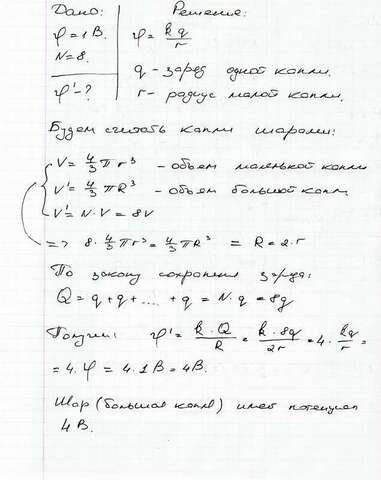 Дано: Решение:
φ = 1 В. φ = kq/r
N = 8.
q - заряд одной капли.
φ' - ? r - радиус малой капли.
Будем считать капли шарами:
V = 4/3 πr³ - объем маленькой капли
V' = 4/3 πR³ - объем большой капл.
V' = N·V = 8V
=> 8·4/3 πr³ = 4/3 πR³ = R = 2·r
По закону сохранения заряда:
Q = q + q + .... + q = N·q = 8q
Получим: φ' = k·Q/R = k·8q/2r = 4·kq/r =
= 4·φ = 4·1 В = 4 В.
Шар (большая капля) имеет потенциал
4 В.